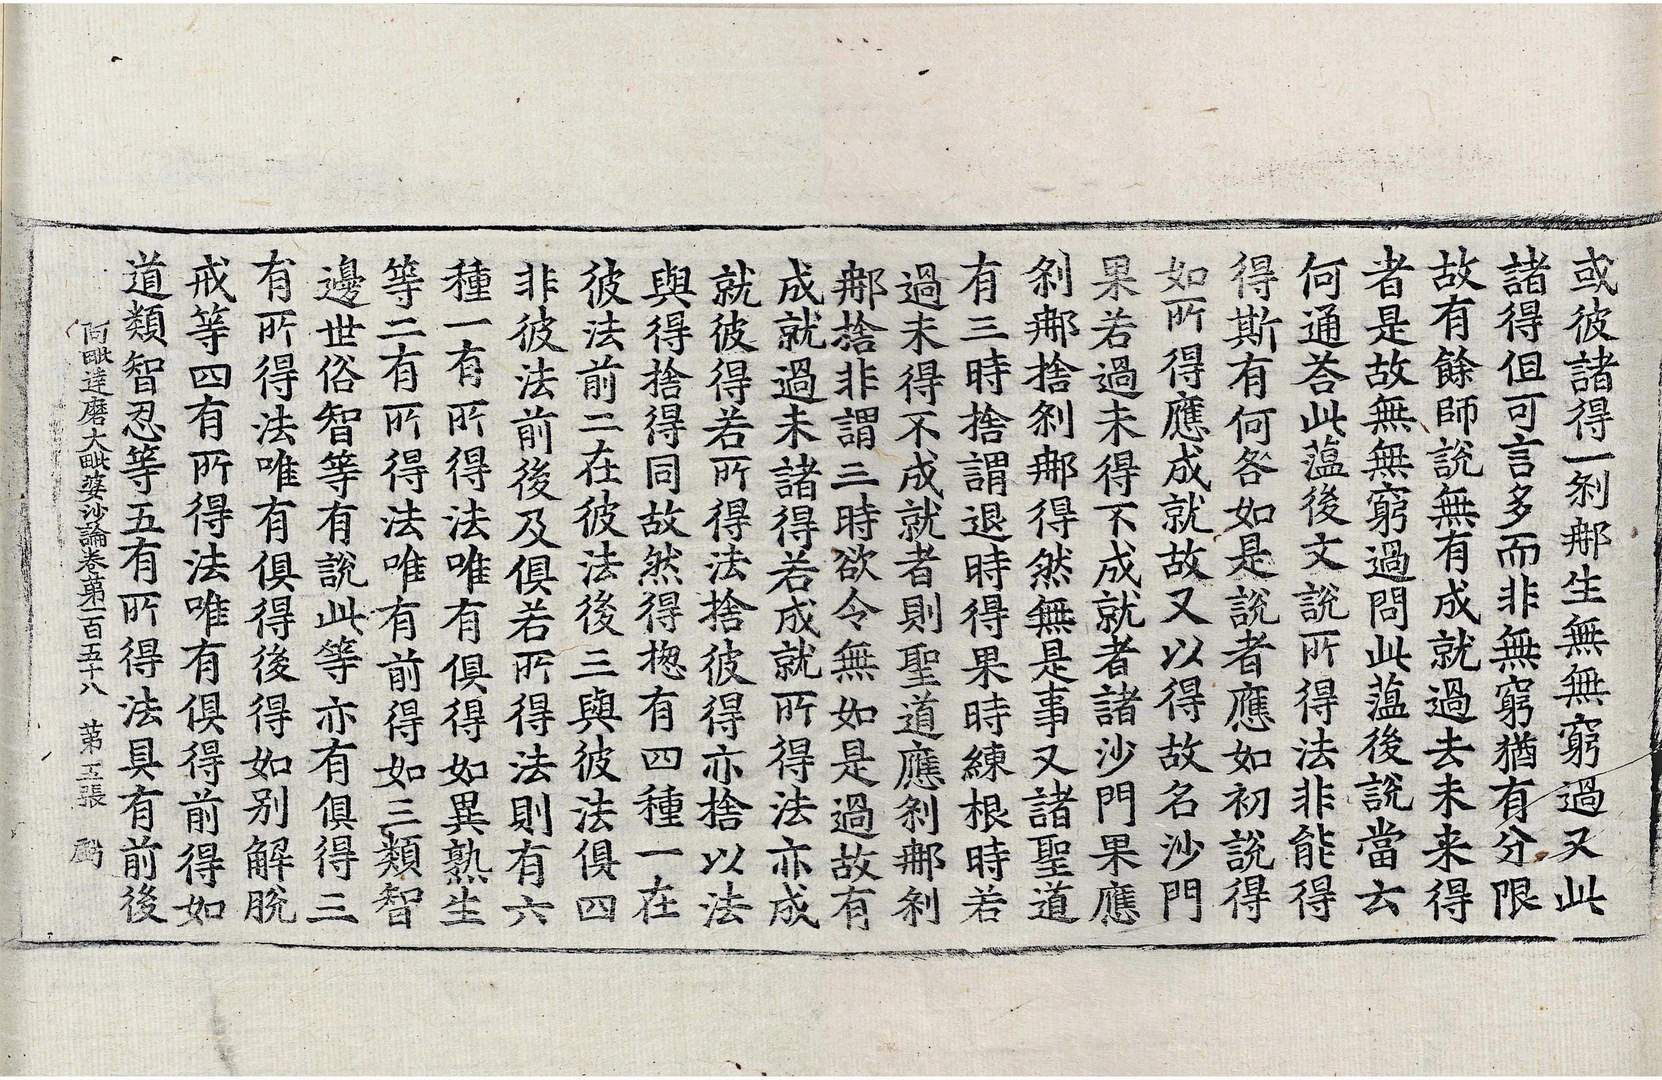 或彼諸得一剎那生無無窮過又此
諸得但可言多而非無窮猶有分限
故有餘師說無有成就過去未来得
者是故無無窮過問此薀後說當云
何通荅此薀後文說所得法非能得
得斯有何咎如是說者應如初說得
如所得應成就故又以得故名沙門
果若過未得不成就者諸沙門果應
剎那捨剎那得然無是事又諸聖道
有三時捨謂退時得果時練根時若
過未得不成就者則聖道應剎那剎
那捨非謂三時欲令無如是過故有
成就過未諸得若成就所得法亦成
就彼得若所得法捨彼得亦捨以法
與得捨得同故然得揔有四種一在
彼法前二在彼法後三與彼法俱四
非彼法前後及俱若所得法則有六
種一有所得法唯有俱得如異熟生
等二有所得法唯有前得如三類智
邊世俗智等有說此等亦有俱得三
有所得法唯有俱得後得如别解脫
戒等四有所得法唯有俱得前得如
道類智忍等五有所得法具有前後
阿毗達磨大毗婆沙論卷第一百五十八 第五張